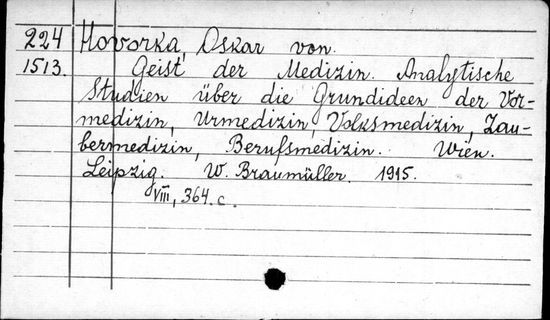 224 Hovorka, Oskar von.
1513. Geist der Medizin. Analytische
Studien über die Grundideen der Vor-
medizin, Urmedizin, Volksmedizin, Zau-
bermedizin, Berufsmedizin. Wien.
Leipzig. W. Braumüller. 1915.
VIII, 364 c.